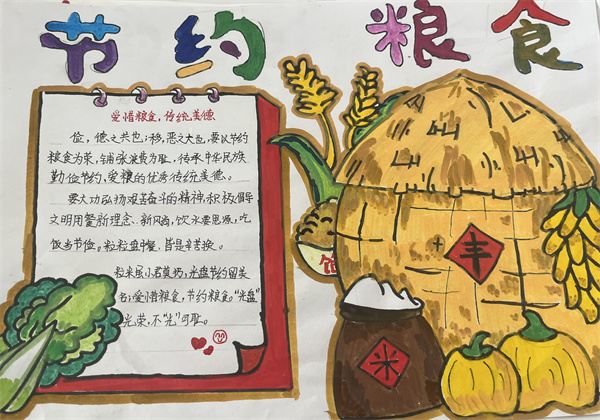 节约粮食
爱惜粮食,传统美德
俭,德之共也;侈,恶之大也,要以节约
粮食为荣,铺张浪费为耻,传承中华民族
勤俭节约、爱粮的优秀传统美德。
要大力弘扬艰苦奋斗的精神,积极倡导
文明用餐新理念、新风尚,饮水要思源,吃
饭当节俭。粒粒盘中餐、皆是辛苦换。
粒米虽小君莫扔,光盘节约留美
名;爱惜粮食,节约粮食。"光盘"
光荣,不"光"可耻。
丰
米